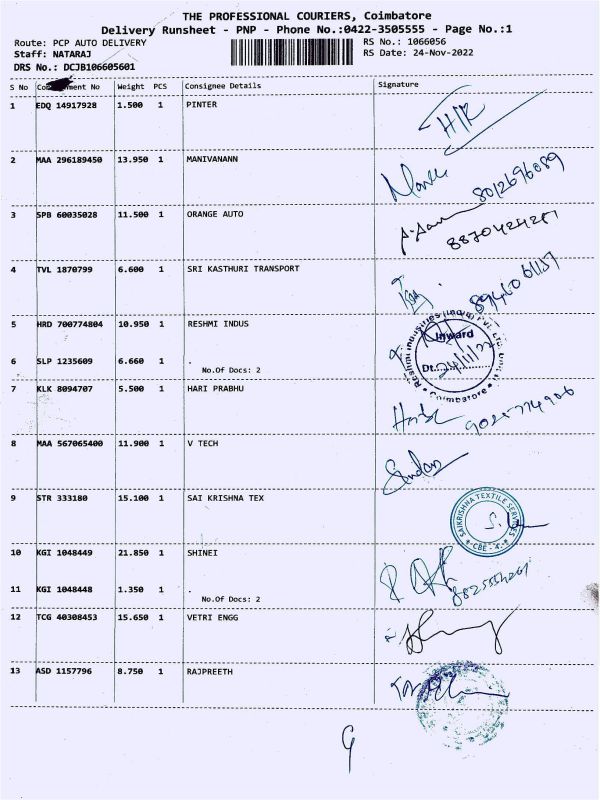 THE PROFESSIONAL COURIERS, Coimbatore
Delivery Runsheet - PNP - Phone No.:0422-3505555 - Page No.:1
Route: PCP AUTO DELIVERY
RS No.: 1066056
Staff: NATARAJ
RS Date: 24-Nov-2022
DRS No.: DCJB106605601
S No Consignment No Weight PCS Consignee Details Signature
1 EDQ 14917928 1.500 1 PINTER
2 MAA 296189450 13.950 1 MANIVANANN
8012696089
3 SPB 60035028 11.500 1 ORANGE AUTO
4 TVL 1870799 6.600 1 SRI KASTHURI TRANSPORT
5 HRD 700774804 10.950 1 RESHMI INDUS
Inward
Dt. 24/11/22
Coimbatore
6 SLP 1235609 6.660 1 .
No.Of Docs: 2
7 KLK 8094707 5.500 1 HARI PRABHU
8 MAA 567065400 11.900 1 V TECH
9 STR 333180 15.100 1 SAI KRISHNA TEX
SAIKRISHNA TEXTILE SERVICES
CBE - 4
10 KGI 1048449 21.850 1 SHINEI
11 KGI 1048448 1.350 1 .
No.Of Docs: 2
12 TCG 40308453 15.650 1 VETRI ENGG
13 ASD 1157796 8.750 1 RAJPREETH